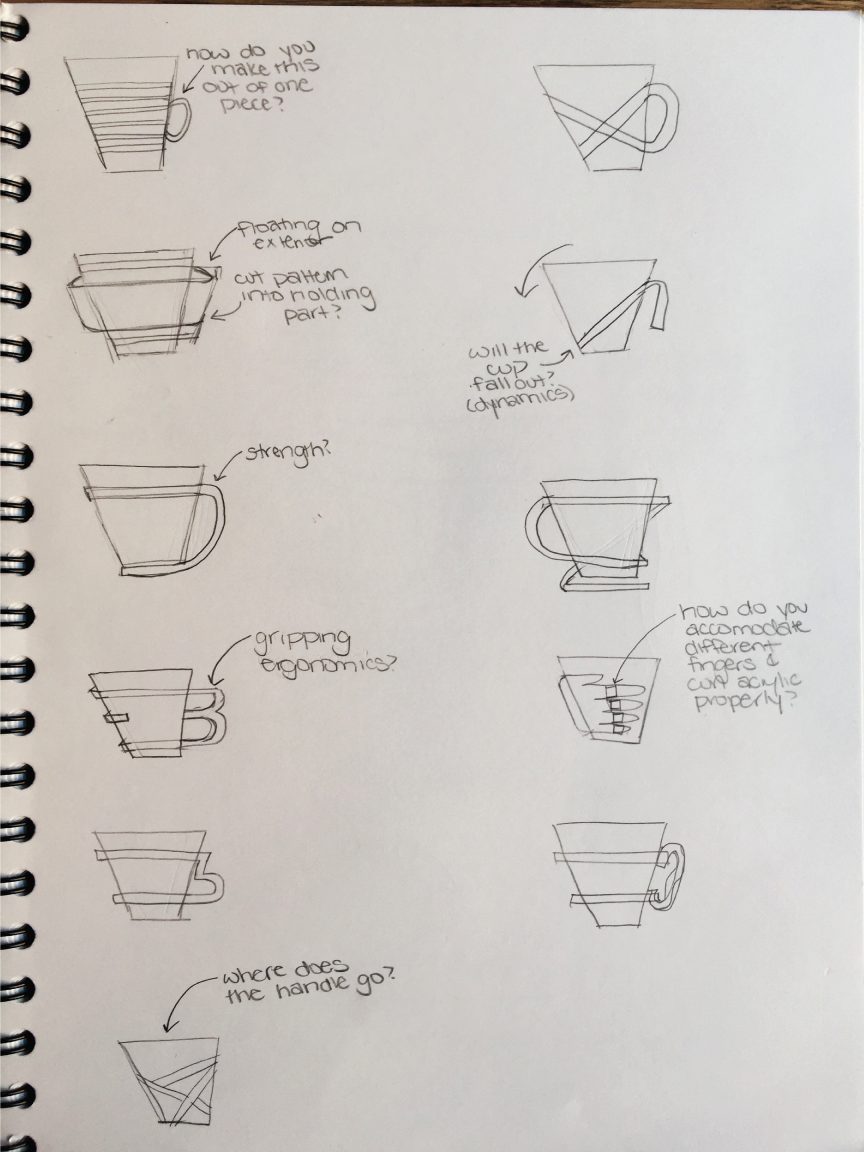 how do you
make this
out of one
piece?
floating on
exterior
cut pattern
into holding
part?
will the
cup
fall out?
(dynamics)
strength?
gripping
ergonomics?
how do you
accomodate
different
fingers &
curl acrylic
properly?
where does
the handle go?